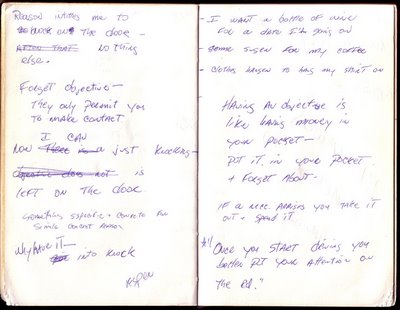 Reason invites me to
knock on the door —
After that nothing
else.
Forget objective —
They only permit you
to make contact
I can
Now There is a just knocking
objective does not is
left on the door
Something specific + concrete for
Simple contact
Why have it —
into knock
- I want a bottle of wine
for a date I'm going on
- some sugar for my coffee
- clothes hanger to hang my shirt on
Having an objective is
like having money in
your pocket —
Put it in your pocket
+ forget about —
If a nice arrives you take it
out + spend it
"Once you start driving you
better put your attention on
the rd."